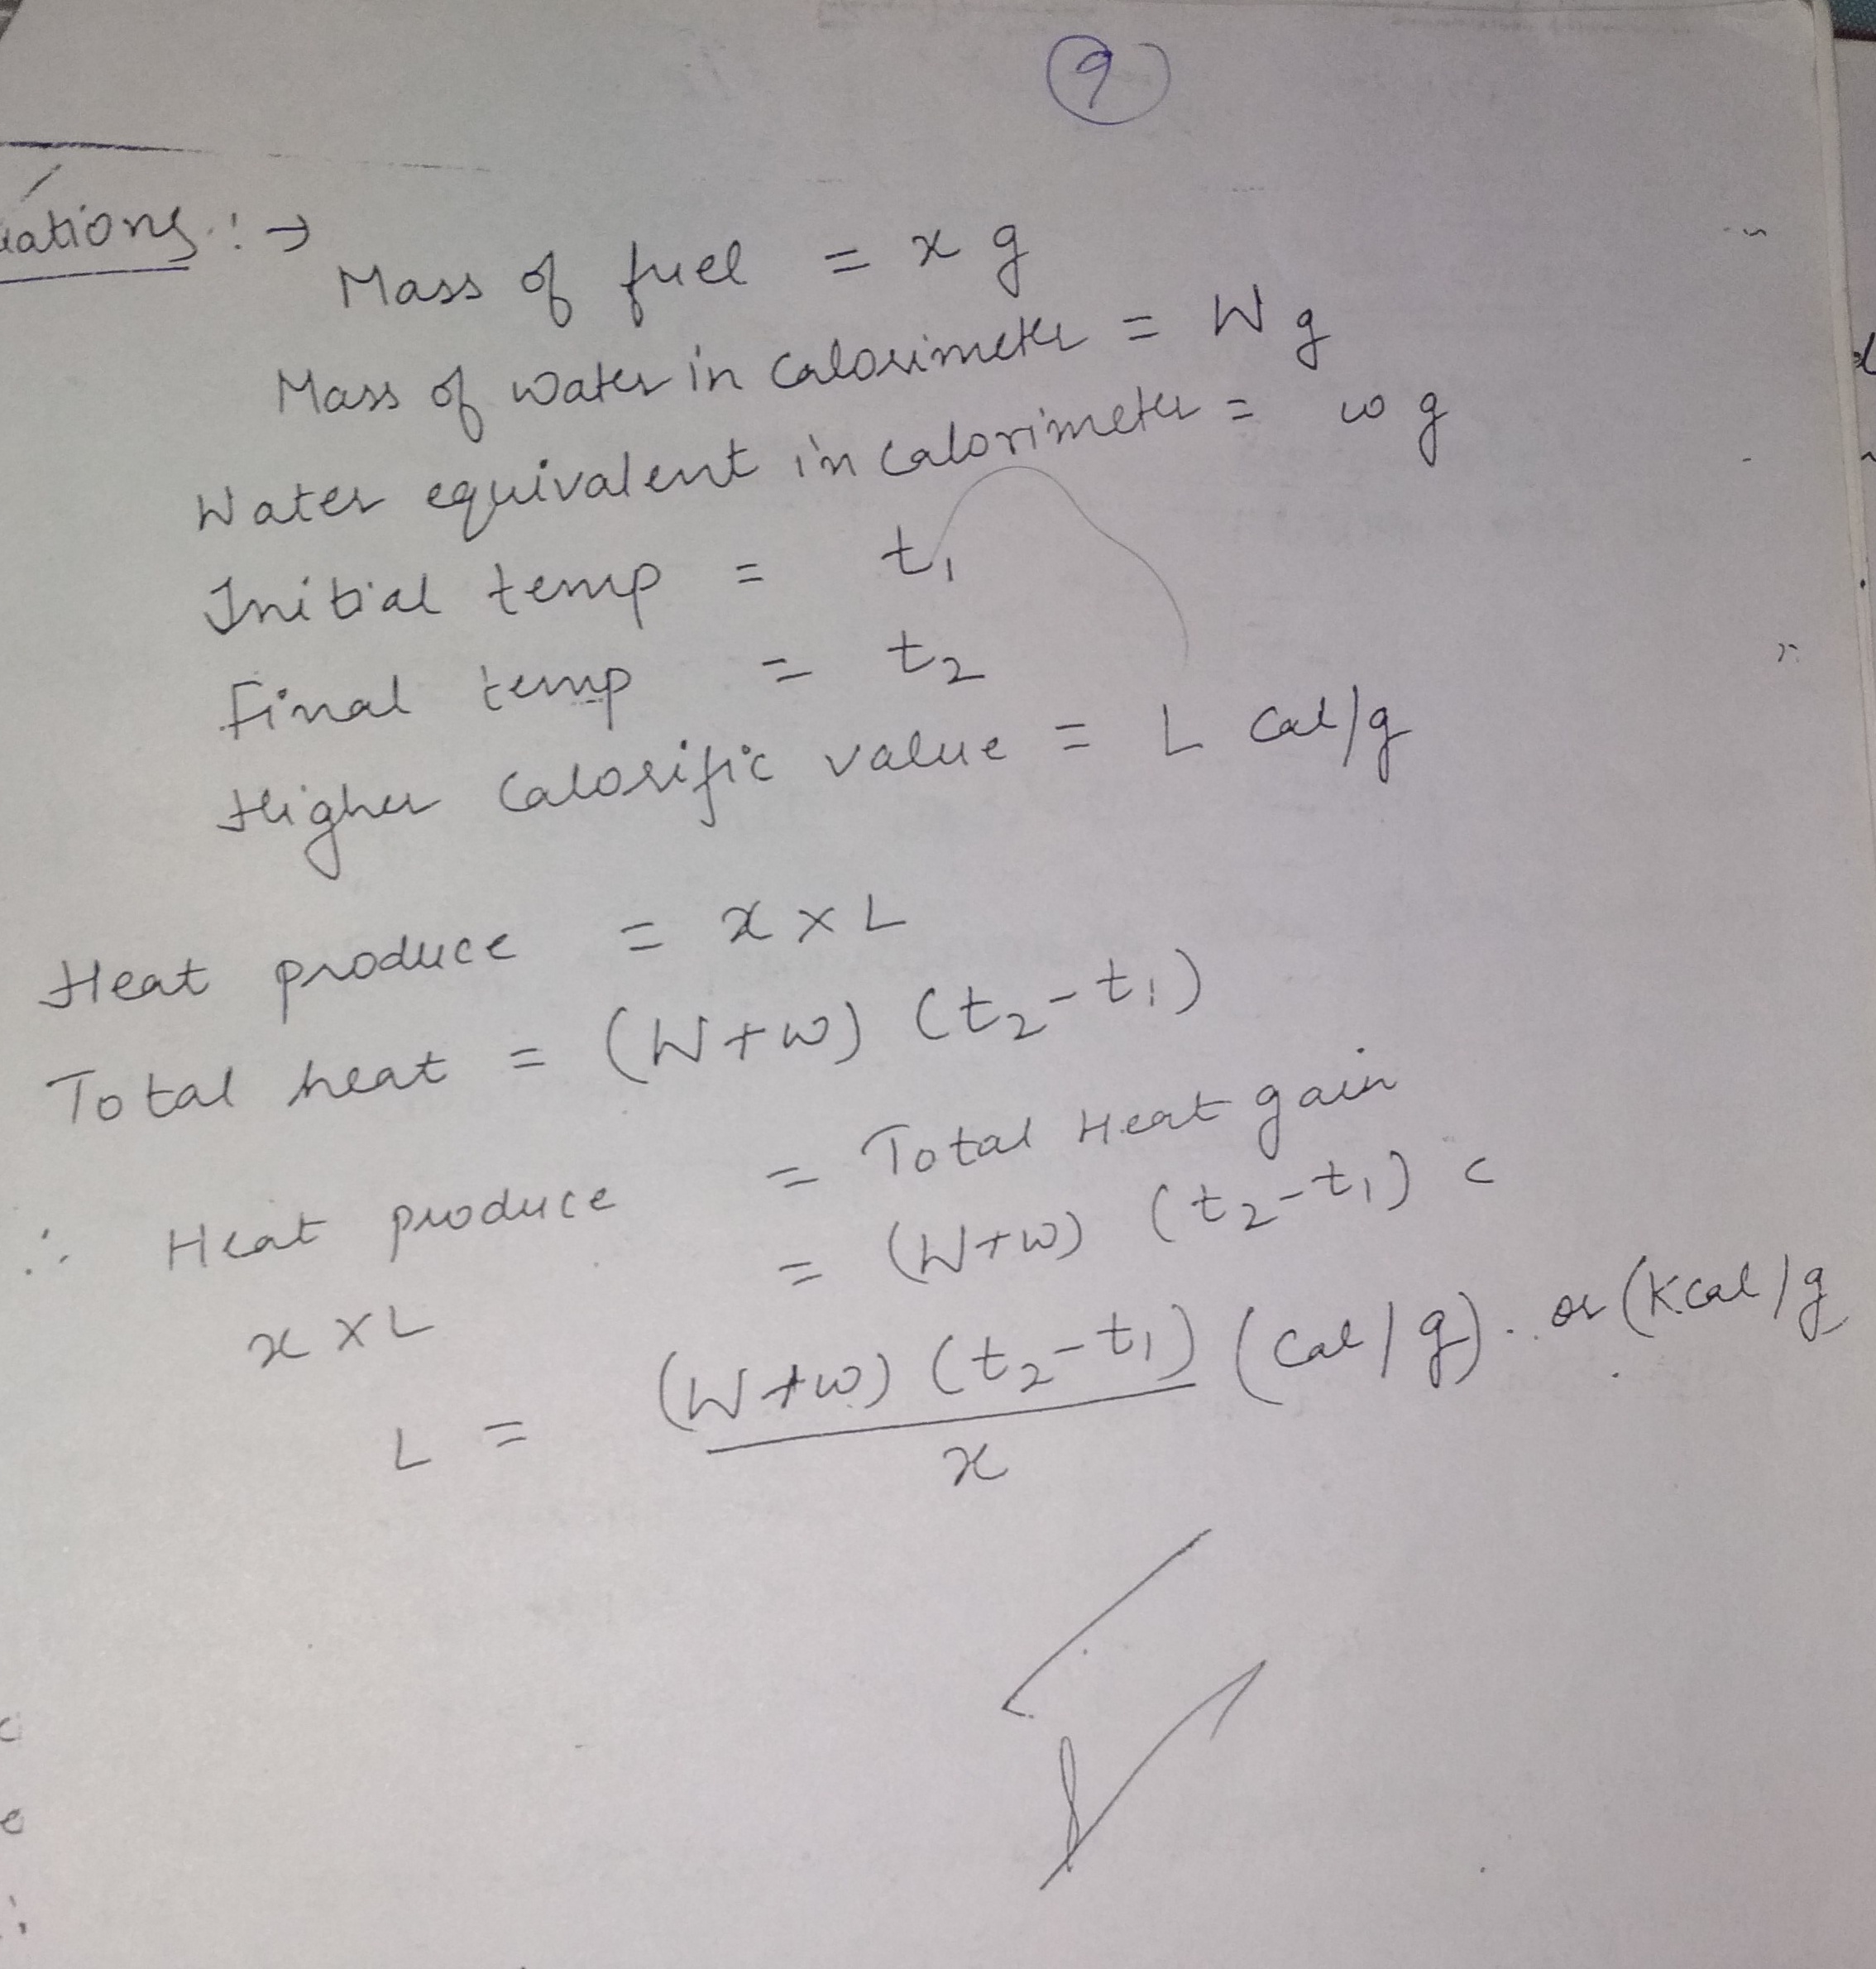 9
ations :→
Mass of fuel = x g
Mass of water in calorimeter = W g
Water equivalent in calorimeter = w g
Initial temp = t₁
Final temp = t₂
Higher Calorific value = L Cal/g
Heat produce = x × L
Total heat = (W+w) (t₂-t₁)
∴ Heat produce = Total Heat gain
x × L = (W+w) (t₂-t₁) c
L = (W+w) (t₂-t₁) / x (Cal/g). or (Kcal/g